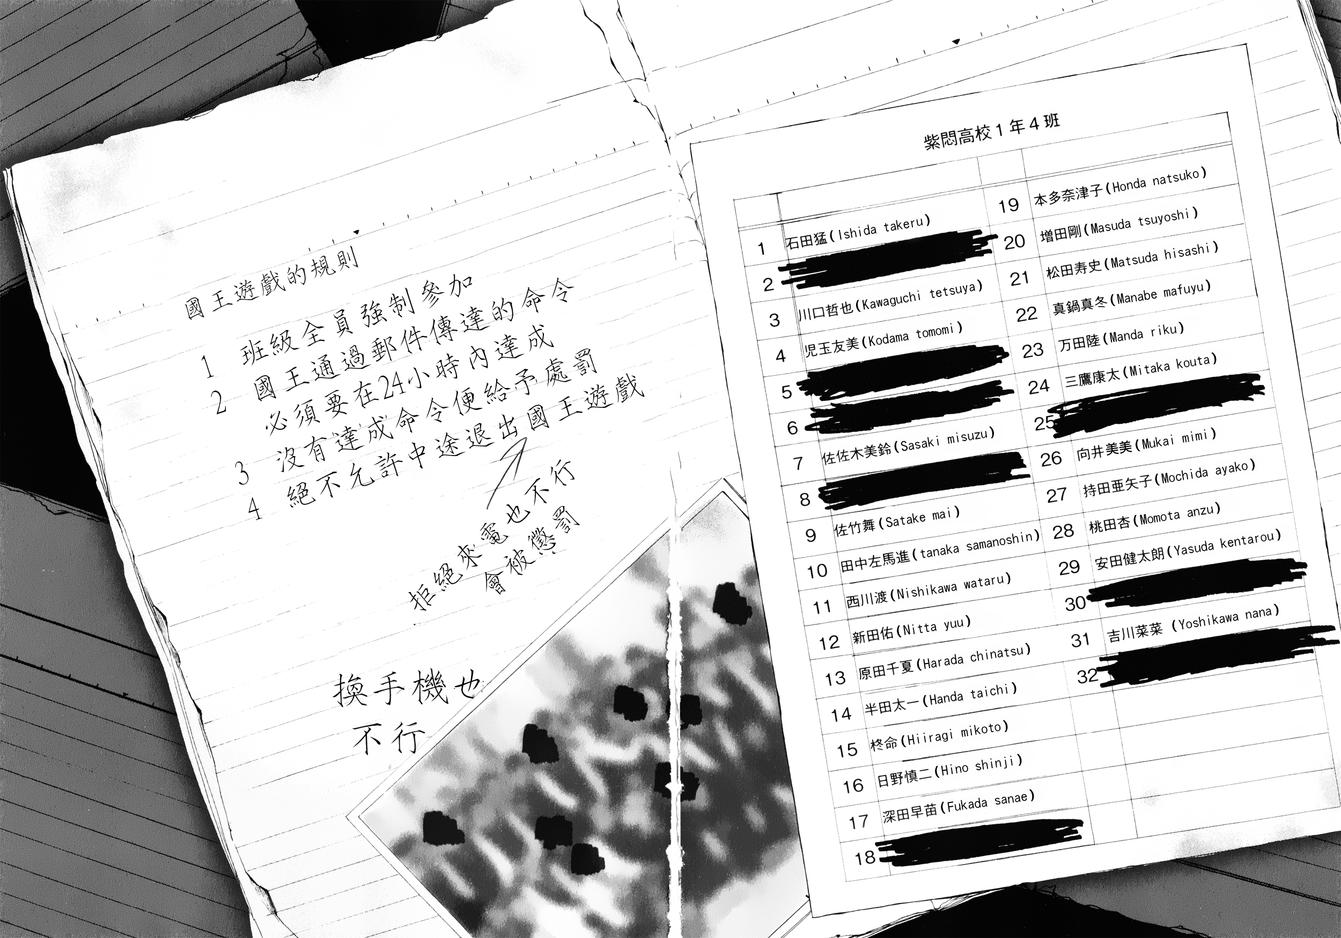 國王遊戲的規則
1 班級全員強制參加
2 國王通過郵件傳達的命令
必須要在24小時內達成
3 沒有達成命令便給予處罰
4 絕不允許中途退出國王遊戲
拒絕來電也不行
會被懲罰
換手機也
不行
紫悶高校1年4班
1 石田猛(Ishida takeru)
2
3 川口哲也(Kawaguchi tetsuya)
4 児玉友美(Kodama tomomi)
5
6
7 佐佐木美鈴(Sasaki misuzu)
8
9 佐竹舞(Satake mai)
10 田中左馬進(tanaka samanoshin)
11 西川渡(Nishikawa wataru)
12 新田佑(Nitta yuu)
13 原田千夏(Harada chinatsu)
14 半田太一(Handa taichi)
15 柊命(Hiiragi mikoto)
16 日野慎二(Hino shinji)
17 深田早苗(Fukada sanae)
18
19 本多奈津子(Honda natsuko)
20 増田剛(Masuda tsuyoshi)
21 松田寿史(Matsuda hisashi)
22 真鍋真冬(Manabe mafuyu)
23 万田陸(Manda riku)
24 三鷹康太(Mitaka kouta)
25
26 向井美美(Mukai mimi)
27 持田亜矢子(Mochida ayako)
28 桃田杏(Momota anzu)
29 安田健太朗(Yasuda kentarou)
30
31 吉川菜菜 (Yoshikawa nana)
32